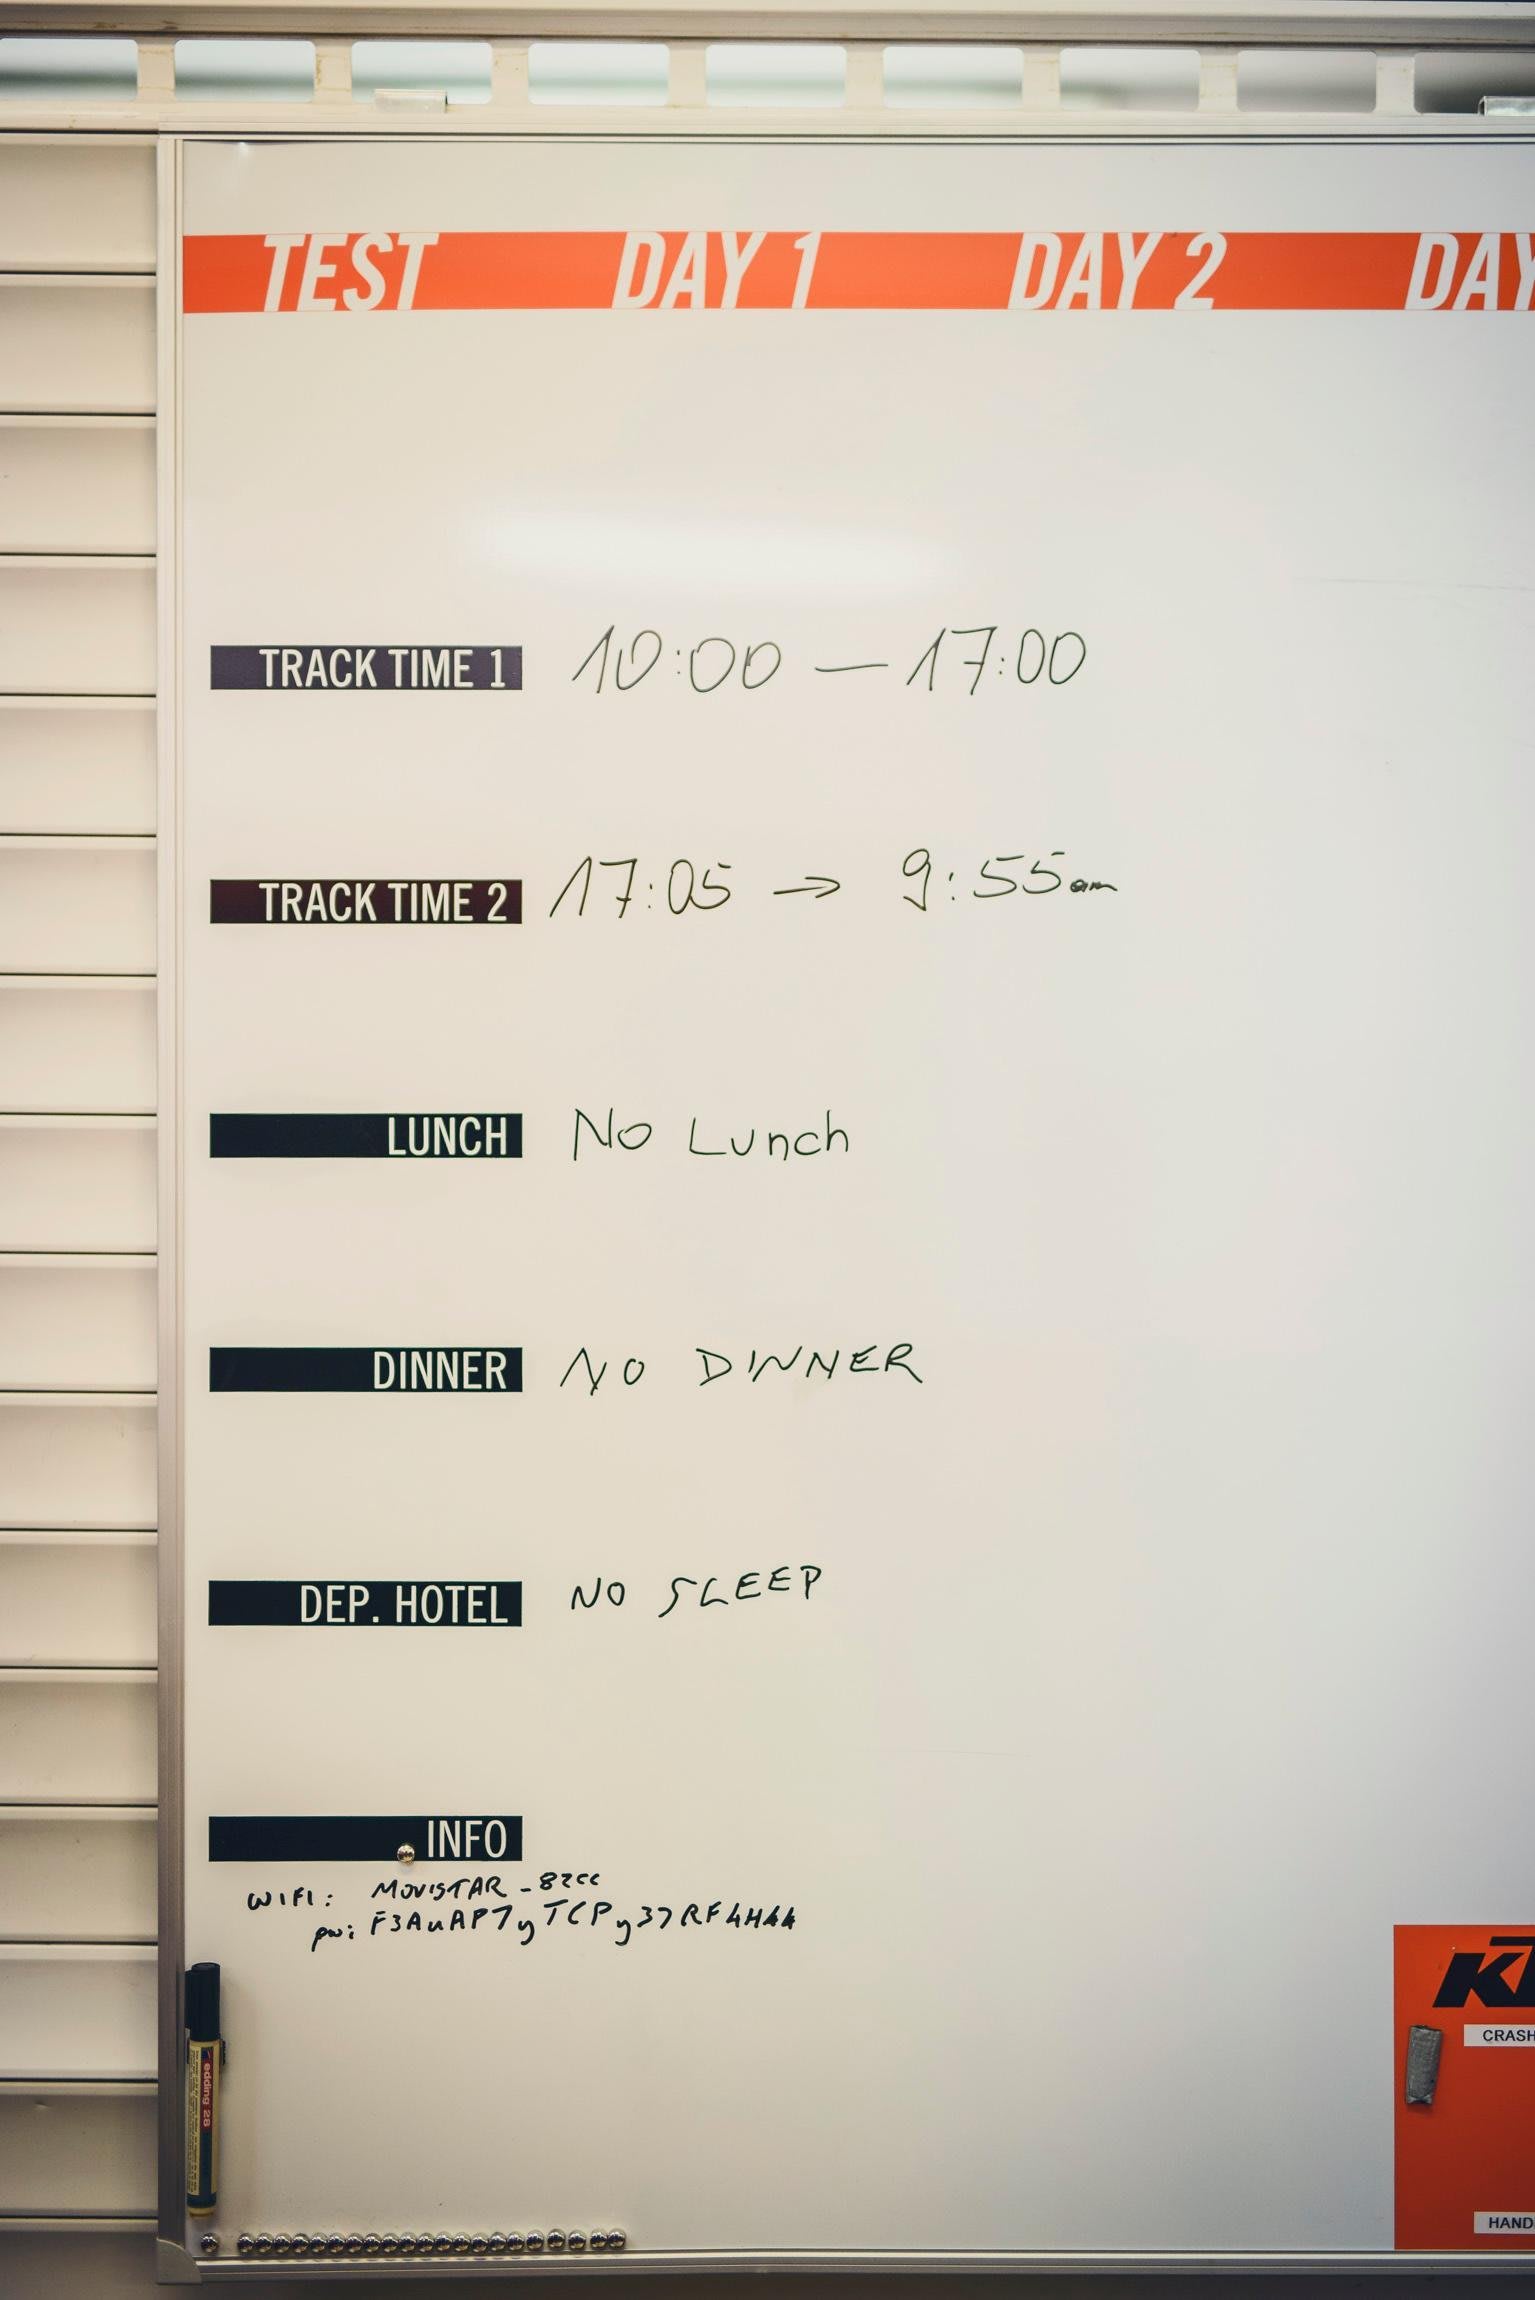 TEST DAY 1 DAY 2 DAY
TRACK TIME 1 10:00 — 17:00
TRACK TIME 2 17:05 → 9:55am
LUNCH No Lunch
DINNER NO DINNER
DEP. HOTEL NO SLEEP
INFO
WIFI: MOVISTAR_82CC
pw:
edding 28
KT
CRASH
HAND